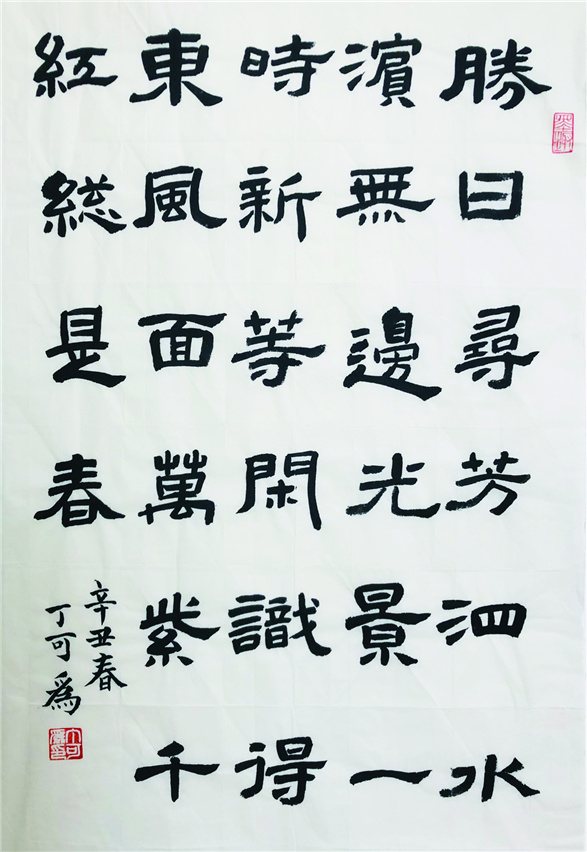 勝日尋芳泗水
濱無邊光景一
時新等閑識得
東風面萬紫千
紅総是春
辛丑春
丁可爲